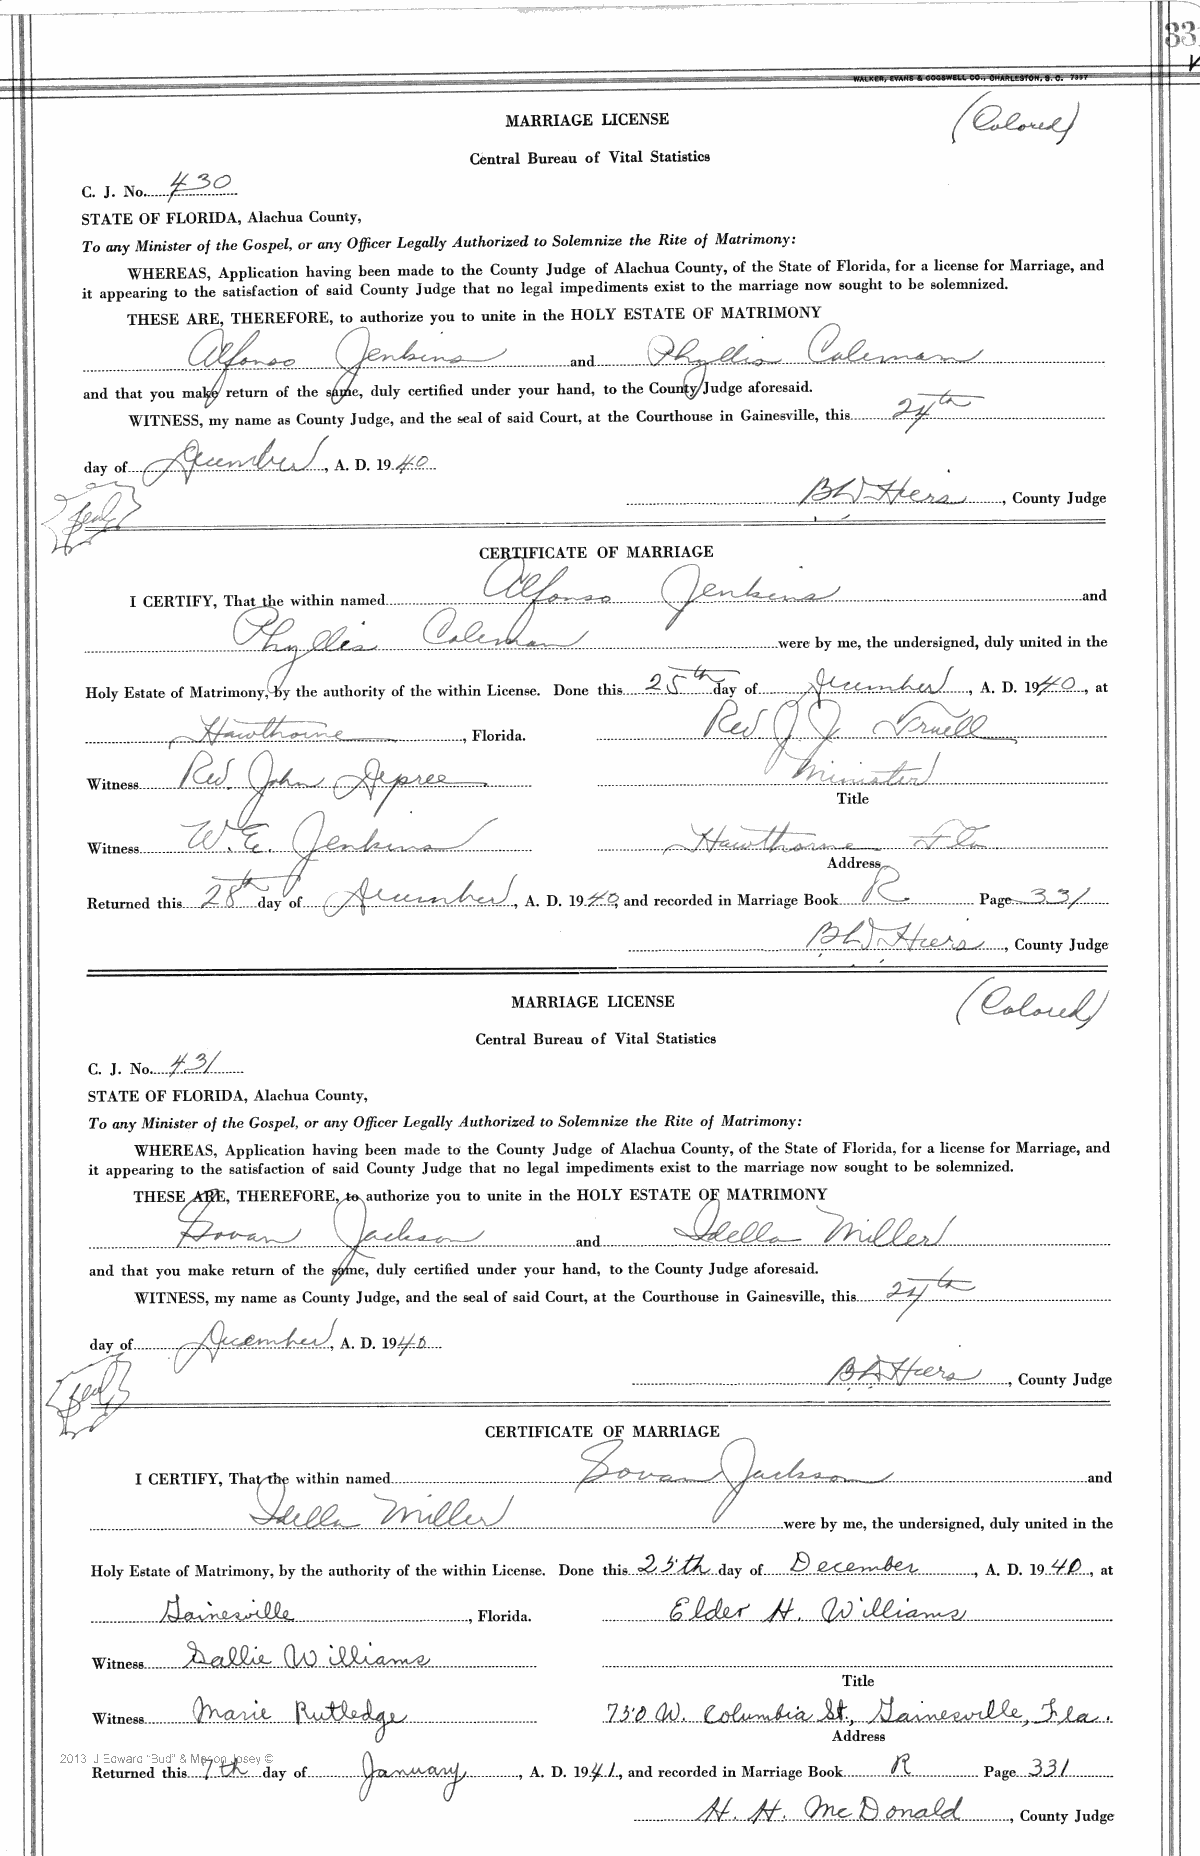 33
WALKER, EVANS & COGSWELL CO., CHARLESTON, S. C. 7357
MARRIAGE LICENSE
(Colored)
Central Bureau of Vital Statistics
C. J. No. 430
STATE OF FLORIDA, Alachua County,
To any Minister of the Gospel, or any Officer Legally Authorized to Solemnize the Rite of Matrimony:
WHEREAS, Application having been made to the County Judge of Alachua County, of the State of Florida, for a license for Marriage, and
it appearing to the satisfaction of said County Judge that no legal impediments exist to the marriage now sought to be solemnized.
THESE ARE, THEREFORE, to authorize you to unite in the HOLY ESTATE OF MATRIMONY
Alfonso Jenkins and Phyllis Coleman
and that you make return of the same, duly certified under your hand, to the County Judge aforesaid.
WITNESS, my name as County Judge, and the seal of said Court, at the Courthouse in Gainesville, this 24th
day of December, A. D. 1940
Seal
Hiers, County Judge
CERTIFICATE OF MARRIAGE
I CERTIFY, That the within named Alfonso Jenkins and
Phyllis Coleman were by me, the undersigned, duly united in the
Holy Estate of Matrimony, by the authority of the within License. Done this 25th day of December, A. D. 1940, at
Hawthorne, Florida. Rev J. J.
Witness Rev. John Depree Minister
Title
Witness W. E. Jenkins Hawthorne Fla
Address
Returned this 28th day of December, A. D. 1940, and recorded in Marriage Book R. Page 331
Hiers, County Judge
MARRIAGE LICENSE
(Colored)
Central Bureau of Vital Statistics
C. J. No. 431
STATE OF FLORIDA, Alachua County,
To any Minister of the Gospel, or any Officer Legally Authorized to Solemnize the Rite of Matrimony:
WHEREAS, Application having been made to the County Judge of Alachua County, of the State of Florida, for a license for Marriage, and
it appearing to the satisfaction of said County Judge that no legal impediments exist to the marriage now sought to be solemnized.
THESE ARE, THEREFORE, to authorize you to unite in the HOLY ESTATE OF MATRIMONY
Govan Jackson and Idella Miller
and that you make return of the same, duly certified under your hand, to the County Judge aforesaid.
WITNESS, my name as County Judge, and the seal of said Court, at the Courthouse in Gainesville, this 24th
day of December, A. D. 1940
Seal
Hiers, County Judge
CERTIFICATE OF MARRIAGE
I CERTIFY, That the within named Govan Jackson and
Idella Miller were by me, the undersigned, duly united in the
Holy Estate of Matrimony, by the authority of the within License. Done this 25th day of December, A. D. 1940, at
Gainesville, Florida. Elder H. Williams
Witness Sallie Williams
Title
Witness Marie Rutledge 750 W. Columbia St., Gainesville, Fla.
Address
2013 J Edward "Bud" & Mason Josey ©
Returned this 7th day of January, A. D. 1941, and recorded in Marriage Book R Page 331
H. H. McDonald, County Judge